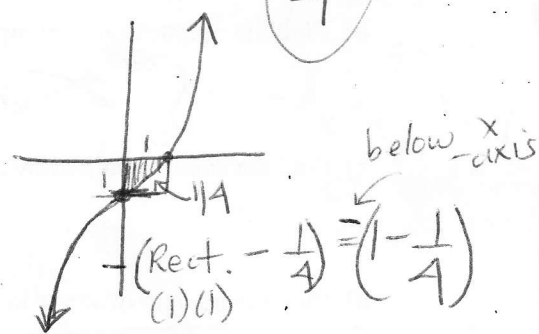 1
1
1/4
below x-axis
-(Rect. - 1/4) = -(1 - 1/4)
(1)(1)